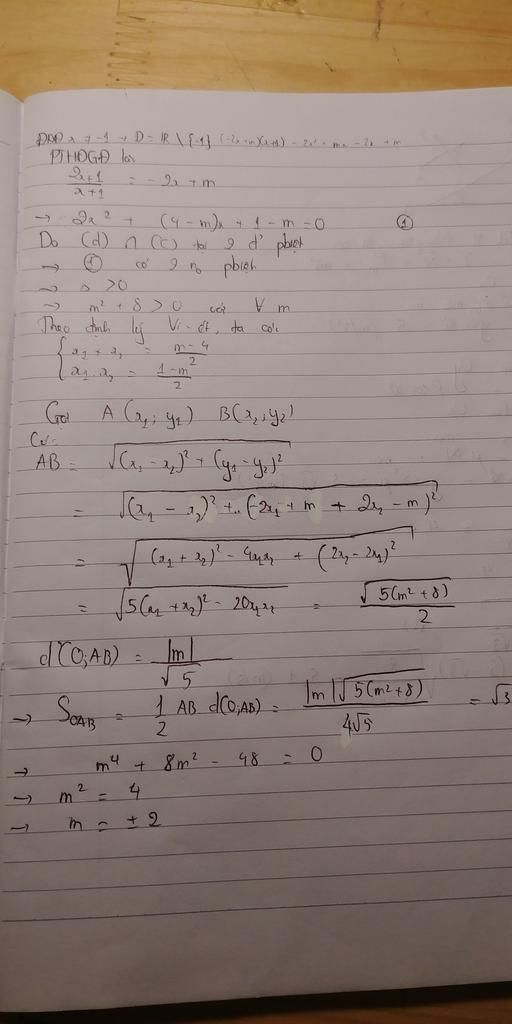 ĐKXĐ x ≠ -1 → D = ℝ \ {-1} (-2x+m)(x+1) - 2x² + mx - 2x + m
PTHĐGĐ là
(2x+1)/(x+1) = - 2x + m
→ 2x² + (4 - m)x + 1 - m = 0 (1)
Do (d) ∩ (C) tại 2 đ' pbiệt
→ (1) có 2 no pbiệt
→ Δ > 0
→ m² + 8 > 0 với ∀ m
Theo định lý Vi-ét, ta có:
{ x₁ + x₂ = (m - 4)/2
{ x₁.x₂ = (1 - m)/2
Gọi A (x₁; y₁) B(x₂; y₂)
Có:
AB = √((x₁ - x₂)² + (y₁ - y₂)²)
= √((x₁ - x₂)² + (-2x₁ + m + 2x₂ - m)²)
= √((x₁ + x₂)² - 4x₁x₂ + (2x₂ - 2x₁)²)
= √(5(x₁ + x₂)² - 20x₁x₂) = √(5(m² + 8))/2
d(O;AB) = |m|/√5
→ S_OAB = 1/2 AB d(O;AB) = |m|√(5(m²+8))/(4√5) = √3
→ m⁴ + 8m² - 48 = 0
→ m² = 4
→ m = ± 2